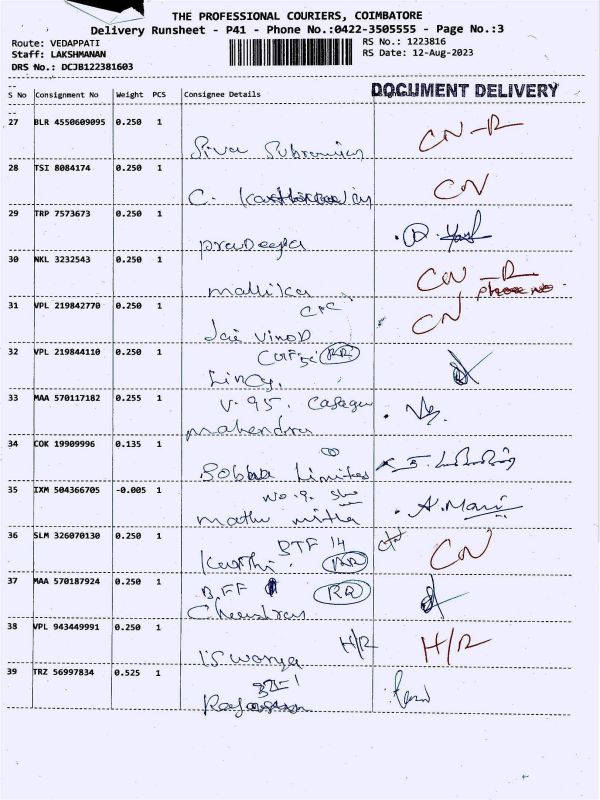 THE PROFESSIONAL COURIERS, COIMBATORE
Delivery Runsheet - P41 - Phone No.:0422-3505555 - Page No.:3
Route: VEDAPPATI
RS No.: 1223816
Staff: LAKSHMANAN
RS Date: 12-Aug-2023
DRS No.: DCJB122381603
DOCUMENT DELIVERY
S No Consignment No Weight PCS Consignee Details
27 BLR 4550609095 0.250 1
CN-R
28 TSI 8084174 0.250 1
C.
CN
29 TRP 7573673 0.250 1
Pradeepa
30 NKL 3232543 0.250 1
CN-R
mallika
Phone No
31 VPL 219842770 0.250 1
CPC
CN
Jai Vinod
32 VPL 219844110 0.250 1
RR
Lincy.
33 MAA 570117182 0.255 1
V. 95.
mahendra
34 COK 19909996 0.135 1
Limited
35 IXM 504366705 -0.005 1
No. 9.
A. Mani
mathu mitha
36 SLM 326070130 0.250 1
BTF 14
CN
Karthi. RR
37 MAA 570187924 0.250 1
BFF RR
38 VPL 943449991 0.250 1
H/R H/R
Iswarya
39 TRZ 56997834 0.525 1